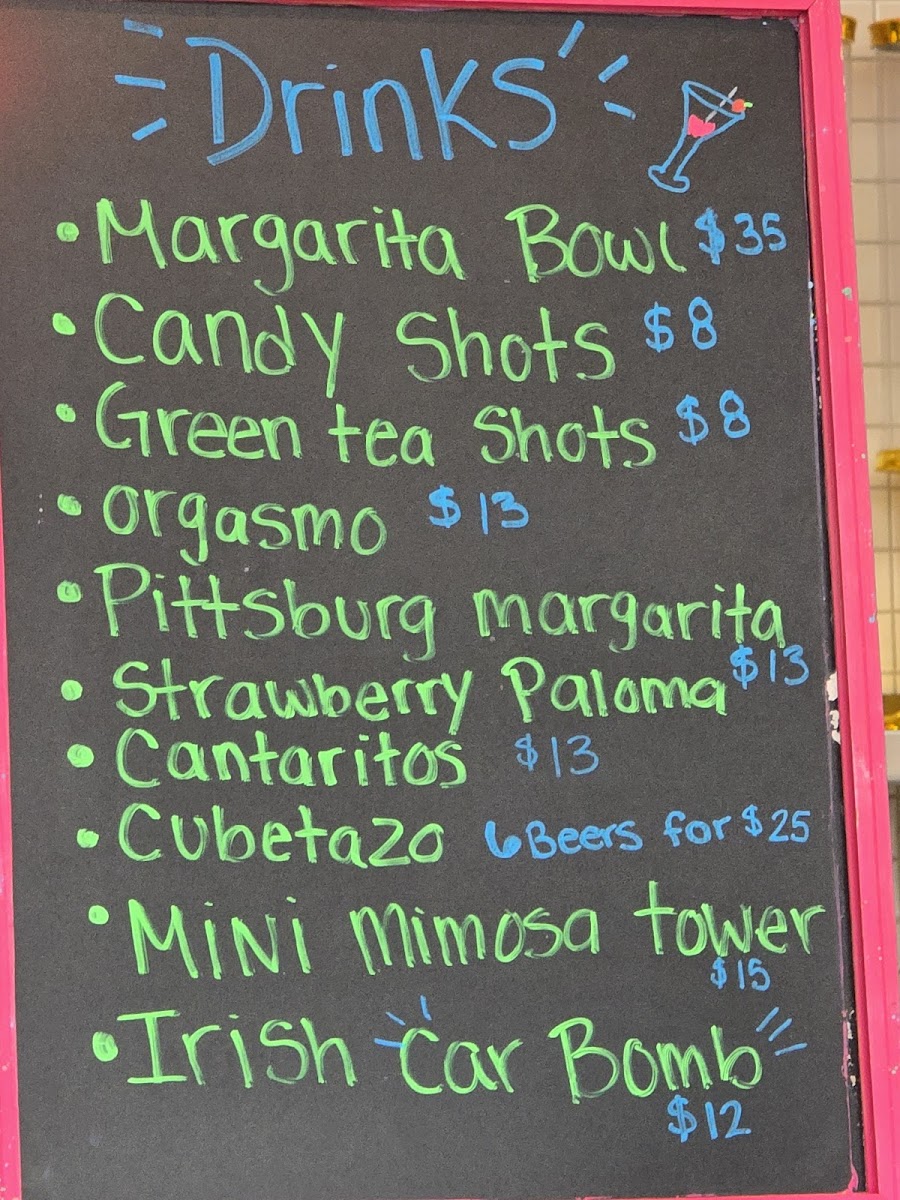 Drinks
• Margarita Bowl $35
• Candy Shots $8
• Green tea Shots $8
• orgasmo $13
• Pittsburg margarita
$13
• Strawberry Paloma
• Cantaritos $13
• Cubetazo 6 Beers for $25
• Mini Mimosa tower
$15
• Irish Car Bomb
$12